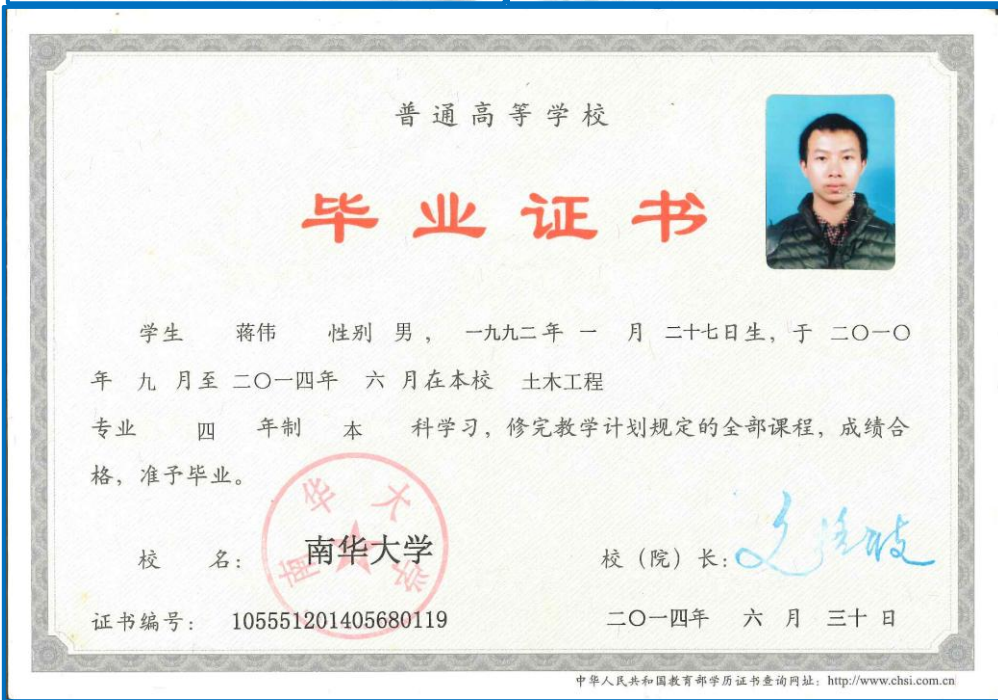 普通高等学校
毕业证书
学生 蒋伟 性别 男, 一九九二年 一 月 二十七日生, 于 二〇一〇
年 九 月至 二〇一四年 六 月在本校 土木工程
专业 四 年制 本 科学习, 修完教学计划规定的全部课程, 成绩合
格, 准予毕业。
南华大学
校 名: 南华大学 校(院)长:
证书编号: 105551201405680119 二〇一四年 六 月 三十 日
中华人民共和国教育部学历证书查询网址: http://www.chsi.com.cn